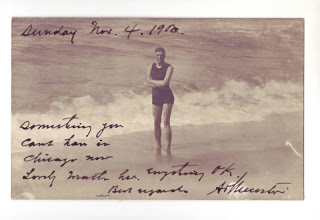 Sunday Nov. 4,
Something you
Cant have in
Chicago now
Lovely Weather here. Everything O.K.
Best regards